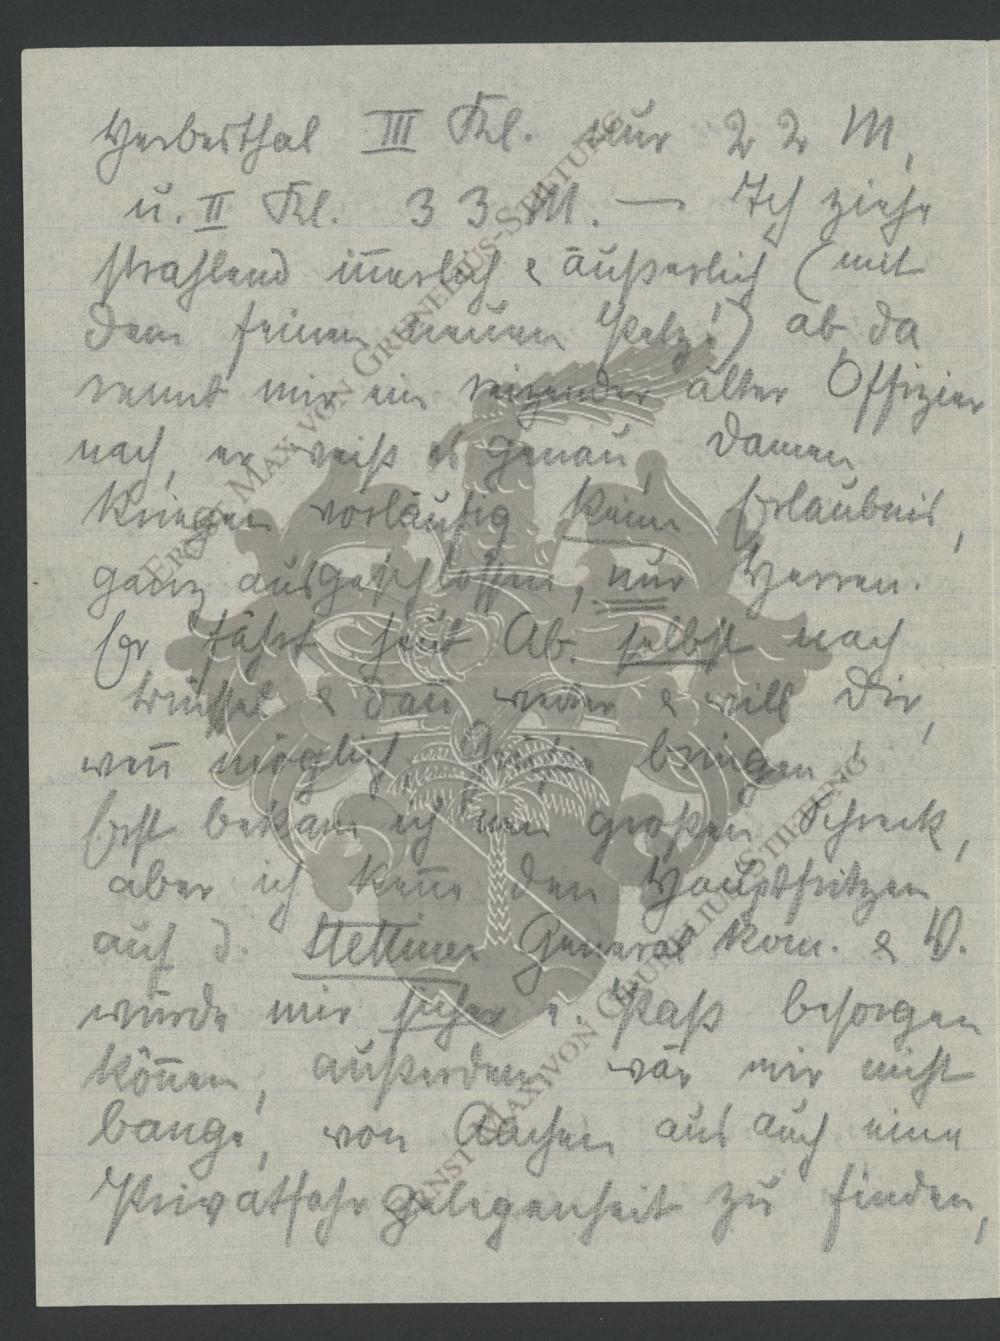 Herbesthal III Kl. nur 22 M,
u. II Kl. 33 M. — Ich ziehe
strahlend innerlich & äußerlich (mit
dem feinen neuen Pelz!) ab, da
rennt mir ein reizender alter Offizier
nach, er weiß es genau, Damen
kriegen vorläufig keine Erlaubnis,
ganz ausgeschlossen, nur Herren.
Er fährt heut Ab. selbst nach
Brüssel & dann weiter & will Dir,
wenn möglich, Grüße bringen.
Erst bekam ich nen großen Schreck,
aber ich kenne den Hauptfritzen
auf d. Stettiner General Kom. & D.
würde mir sicher e. Paß besorgen
können, außerdem wär mir nicht
bange, von Aachen aus auch eine
Privatfahrgelegenheit zu finden,
ERNST MAX VON GRUNELIUS-STIFTUNG
ERNST MAX VON GRUNELIUS-STIFTUNG